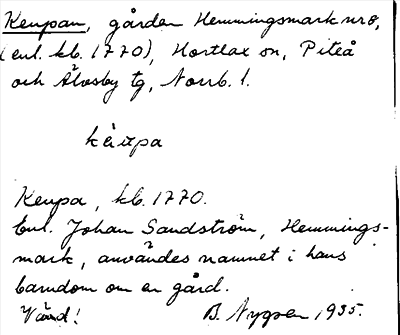 Keupan, gården Hemmingsmark nr 8,
(enl. kb. 1770), Hortlax sn, Piteå
och Älvsby tg, Norrb. l.
kèupa
Keupa, kb. 1770.
Enl. Johan Sandström, Hemmings-
mark, användes namnet i hans
barndom om en gård.
Vänd! B. Nygren 1935.